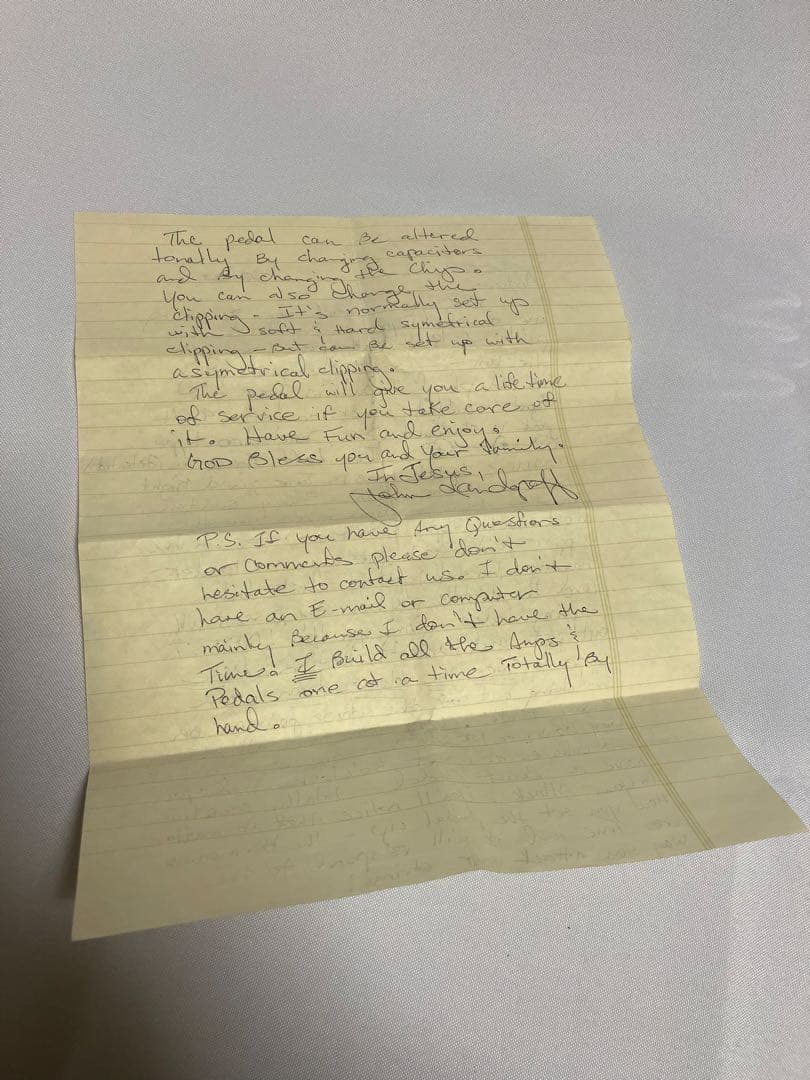 The pedal can Be altered
tonally By changing capacitors
and By changing the Chips.
You can also change the
clipping - It's normally set up
with soft & Hard symetrical
clipping - But can Be set up with
asymetrical clipping.
The pedal will give you a lifetime
of service if you take care of
it. Have Fun and enjoy.
GOD Bless you and Your Family.
In Jesus,
John Landgraff
P.S. If you have Any Questions
or Comments please don't
hesitate to contact us. I don't
have an E-mail or computer
mainly Because I don't have the
Time. I Build all the Amps &
Pedals one at a time Totally By
hand.